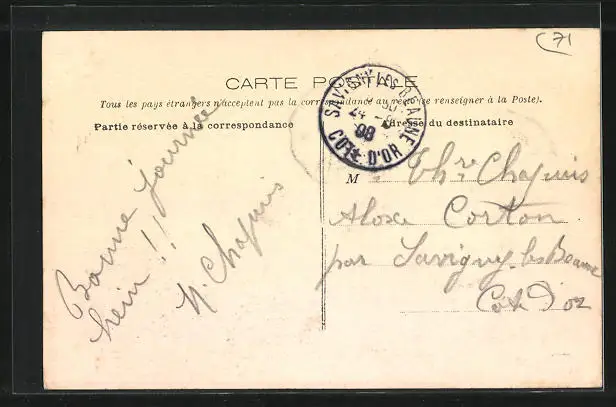 71
CARTE POSTALE
Tous les pays étrangers n'acceptent pas la correspondance au recto (se renseigner à la Poste).
Partie réservée à la correspondance
Adresse du destinataire
SAVIGNY LES BEAUNE
24
08
COTE D'OR
Bonne journée
hein !!
N. Chapuis
M Thre Chapuis
Aloxe Corton
par Savigny-les Beaune
Cote D'or